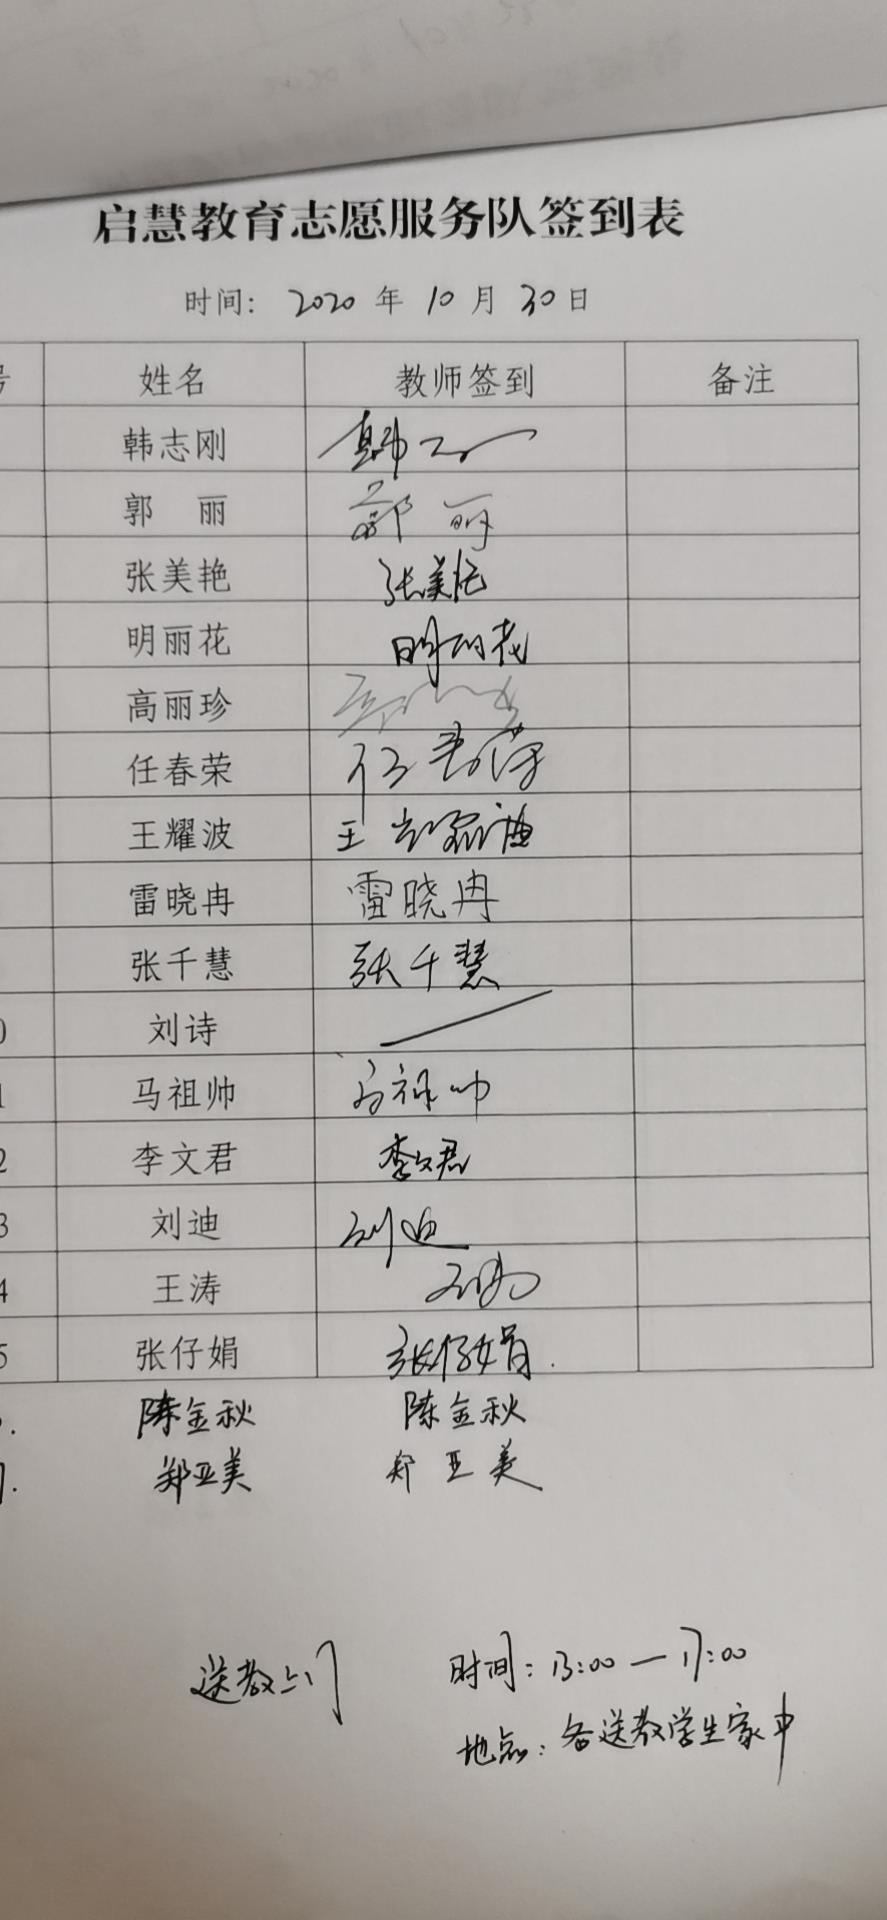 启慧教育志愿服务队签到表
时间: 2020 年 10 月 30 日
号 姓名 教师签到 备注
韩志刚 韩
郭 丽 郭 丽
张美艳 张美艳
明丽花 明丽花
高丽珍
任春荣 任春荣
王耀波 王
雷晓冉 雷晓冉
张千慧 张千慧
0 刘诗
1 马祖帅 马祖帅
2 李文君 李文君
3 刘迪 刘迪
4 王涛 王涛
5 张仔娟 张仔娟.
陈金秋 陈金秋
7. 郑亚美 郑亚美
送教上门 时间: 13:00 — 17:00
地点: 各送教学生家中